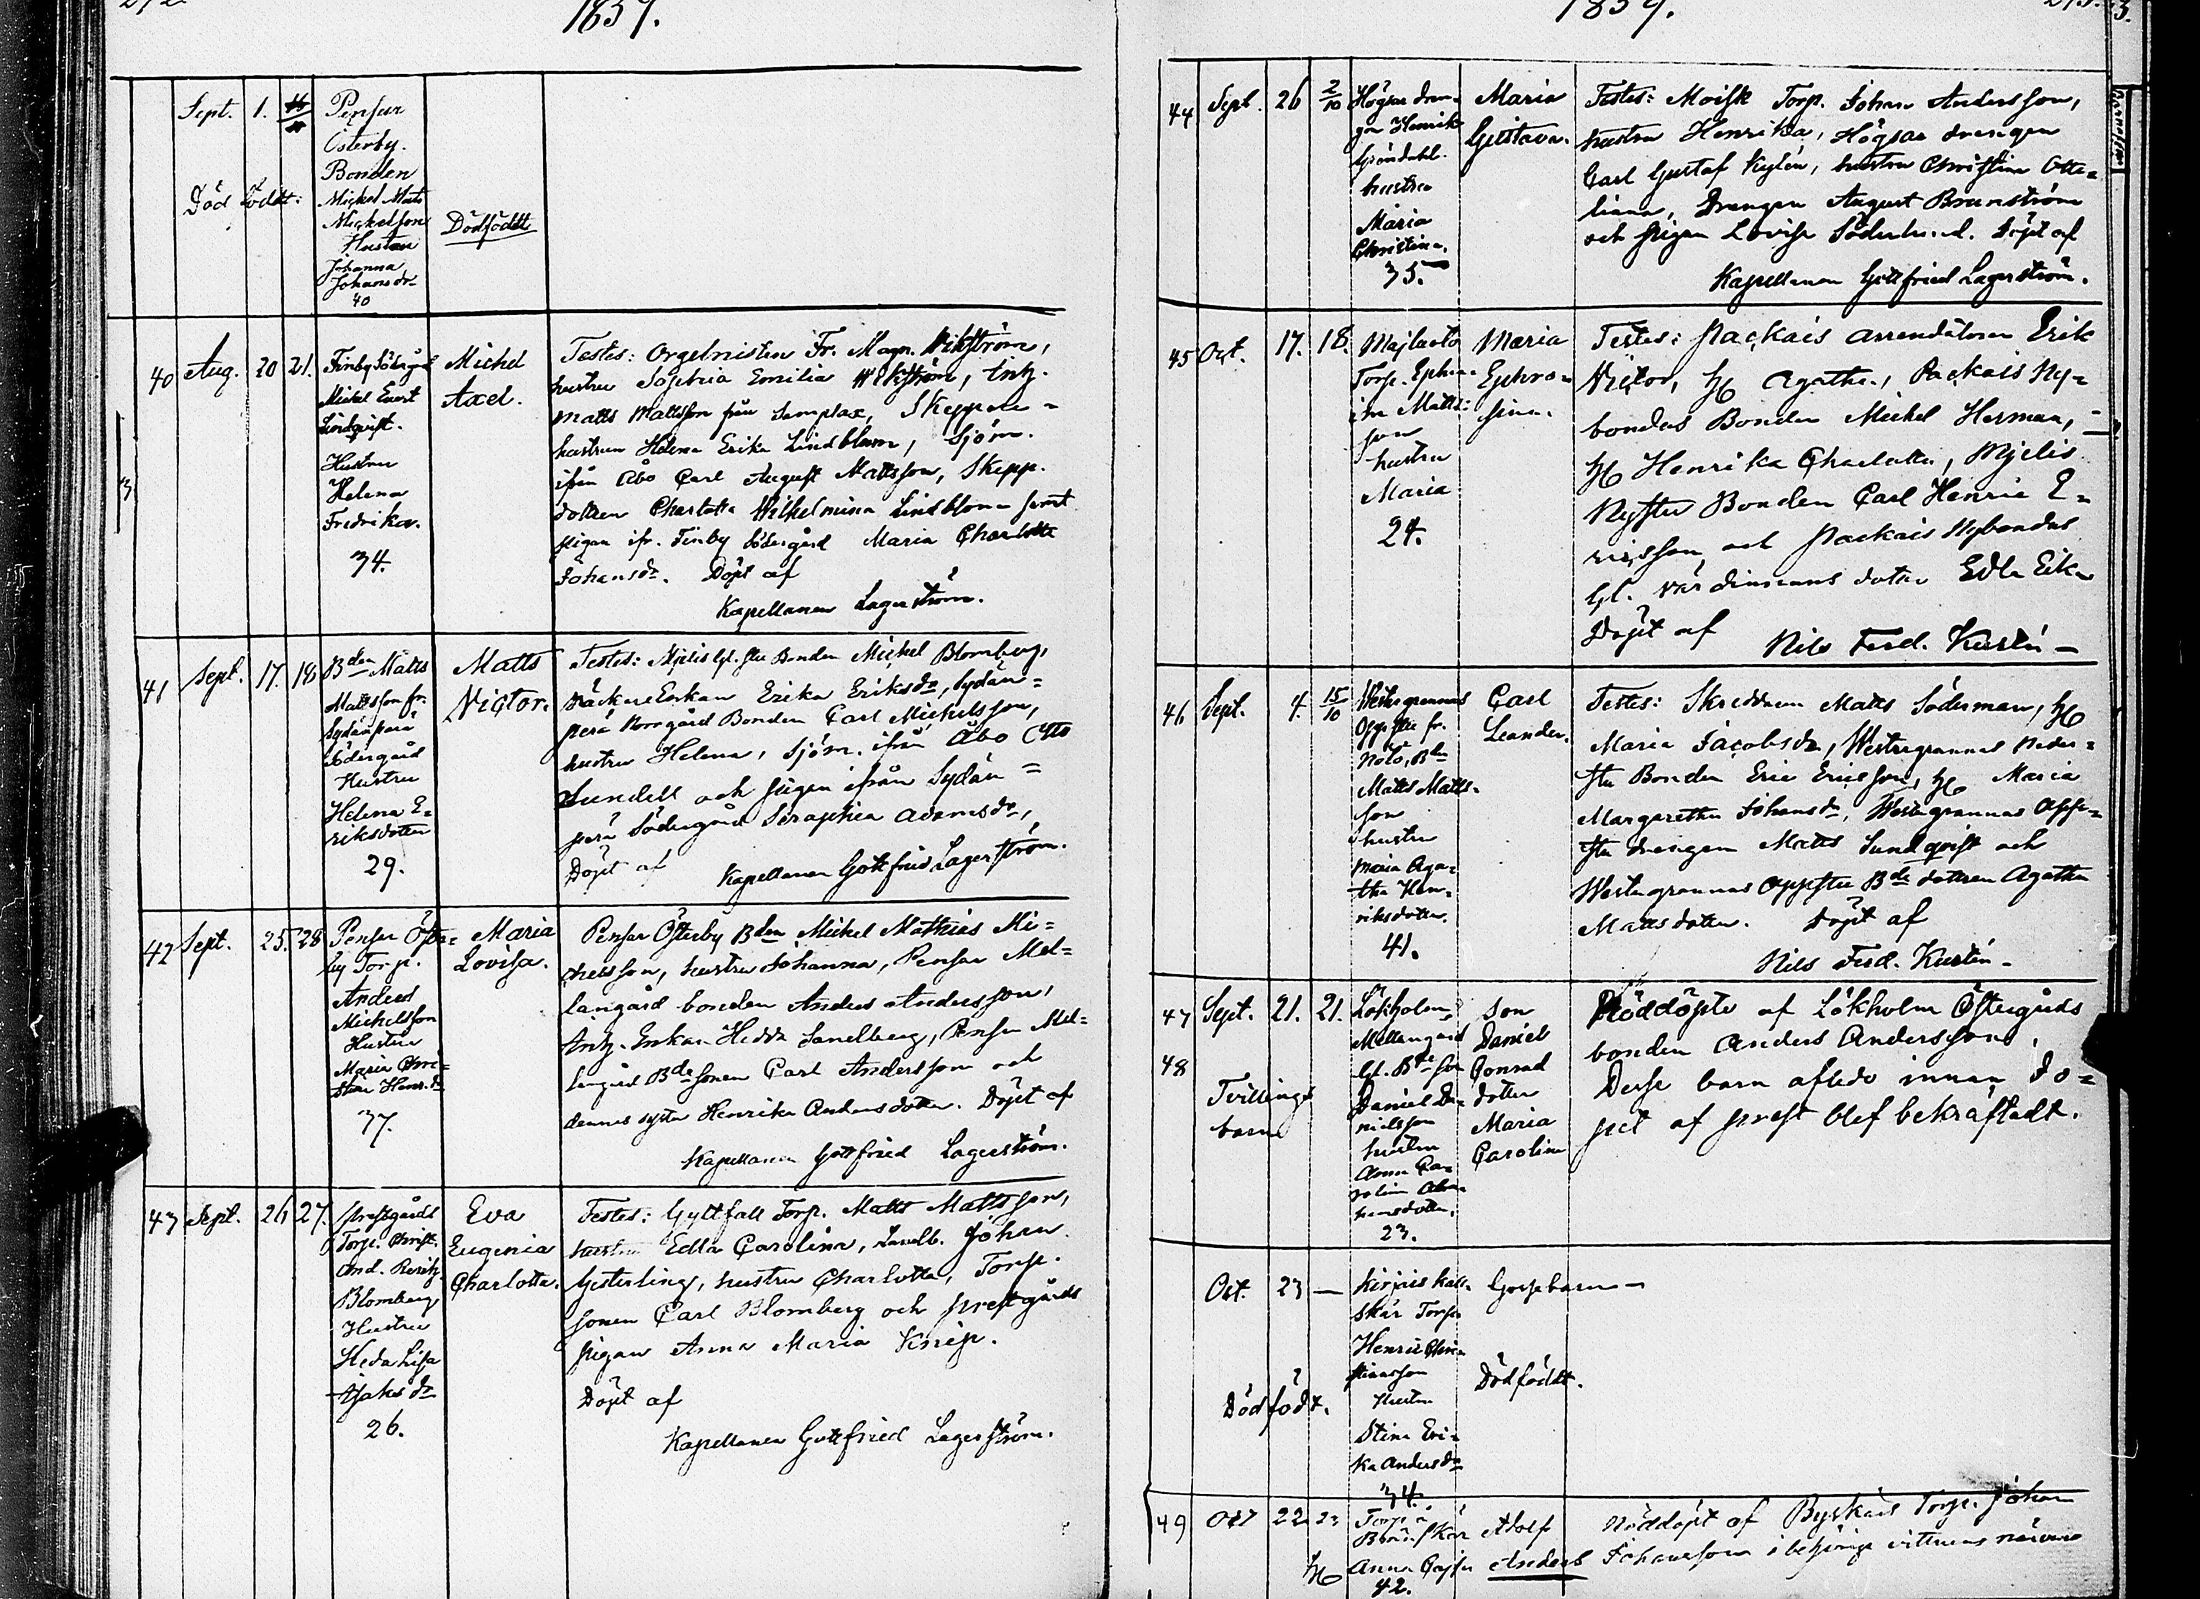 1859.
Sept. 1.
Pensar
Österby.
Bonden
Michel Mats
Mickelsson
Hustru
Johanna
Johansdr
40
Död född:
Dödfödt
40 Aug. 20 21.
Finby Södergård
Michel Evert
Lindqvist.
Hustru
Helena
Fredrika.
34.
Michel
Axel.
Testes: Orgelnisten Fr. Magn. Wikström,
hustru Sophia Emilia Wikström, Enk.
Matts Mattsson från Samplax, Skeppare-
hustrun Helena Erika Lindblom, Sjöm.
ifån Åbo Carl August Mattsson, Skepp.
dottren Charlotta Wilhelmina Lindblom samt
pigan ifr. Finby Södergård Maria Charlotta
Johansdr. Döpt af
Kapellanen Lagerström.
41 Sept. 17. 18
Bden Matts
Mattsson fr.
Sydänperä
Södergård
Hustru
Helena E=
riksdotter
29.
Matts
Victor.
Testes: Mjelis Bonden Michel Blomberg,
Enkan Erika Eriksdr, Sydän=
perä Norrgård Bonden Carl Michelsson,
hustru Helena, Sjöm. ifrån Åbo Otto
Sundell och pigan ifrån Sydän=
perä Södergård Seraphia Adamsdr,
Döpt af Kapellanen Gottfried Lagerström.
42 Sept. 25. 28
Pensar Öster=
by Torp.
Anders
Michelsson
Hustru
Maria Chri=
stina Henr.dr
37.
Maria
Lovisa.
Pensar Österby Bden Michel Mathias Mi=
chelsson, hustru Johanna, Pensar Mel=
langård bonden Anders Andersson,
Enk. Enkan Hedda Sandberg, Pensar Mel=
langård Bdesonen Carl Andersson och
dennes syster Henrika Andersdotter. Döpt af
Kapellanen Gottfried Lagerström.
43 Sept. 26 27.
Prestgårds
Torp. Christ.
And.
Blomberg
Hustru
Heda Lisa
Isaksdr
26.
Eva
Eugenia
Charlotta.
Testes: Gyttfall Torp. Matts Mattsson,
hustru Edla Carolina, Landb. Johan
Gesterling, hustru Charlotta, Torp.
sonen Carl Blomberg och prestgårds
pigan Anna Maria Knip.
Döpt af
Kapellanen Gottfried Lagerström.
1859.
44 Sept. 26 2/10
Högsar dren-
gen Henrik
Gröndahl.
hustru
Maria
Christina.
35.
Maria
Gustava.
Testes: Moisk Torp. Johan Andersson,
hustru Henrika, Högsar drengen
Carl Gustaf Kylén, hustru Christina Otte=
liana, Drengen August Brunström
och pigan Lovisa Söderlund. Döpt af
Kapellanen Gottfried Lagerström.
45 Oct. 17. 18.
Majlasto
Torp. Ephra-
im Matts=
son
hustru
Maria
24.
Maria
Ephro=
sina.
Testes: Packais arrendatoren Erik
Victor, H Agatha, Packais Ny=
bondas Bonden Michel Herman,
H Henrika Charlotta, Mjelis
Nystu Bonden Carl Henric E=
ricsson, och Packais Nybondas
gl. värdinnans dotter Edla Erik-
Döpt af Nils Ferd. Kustén
46 Sept. 4. 15/10
Westergrannas
Oppstu fr.
Nolö, Bde
Matts Matts-
son
hustru
Maria Aga=
tha Hen=
riksdotter.
41.
Carl
Leander.
Testes: Skreddaren Matts Söderman, H
Maria Jacobsdr, Westergrannas Neder=
stu Bonden Eric Ericsson, H Maria
Margaretha Johansdr, Westergrannas Oppe=
stu drengen Matts Sundqvist och
Westergrannas Oppstu Bde dottren Agatha
Mattsdotter. Döpt af
Nils Ferd. Kustén
47 Sept. 21. 21.
48
Tvillinge
barn
Lökholm
Mellangård
gl. Bde son
Daniel Da=
nielsson
hustru
Anna Ca=
rolina Abra-
hamsdotter,
23.
Son
Daniel
Conrad
dotter
Maria
Carolina
Nöddöpte af Lökholm Östergårds
bonden Anders Andersson.
Desse barn afledo innan do=
pet af prest blef bekräftadt.
Oct. 23 —
Dödfödt.
Kirjais Kall-
skär Torp.
Henric Chri-
stiansson
Hustru
Stina Eri=
ka Andersdr
34.
Gossebarn —
Dödfödt.
49 Oct 22 23
Torp.
H Anna Cajsa
42.
Adolf
Anders
Nöddöpt af Byskärs Torp. Johan
Johansson i behörige vittnens närvaro